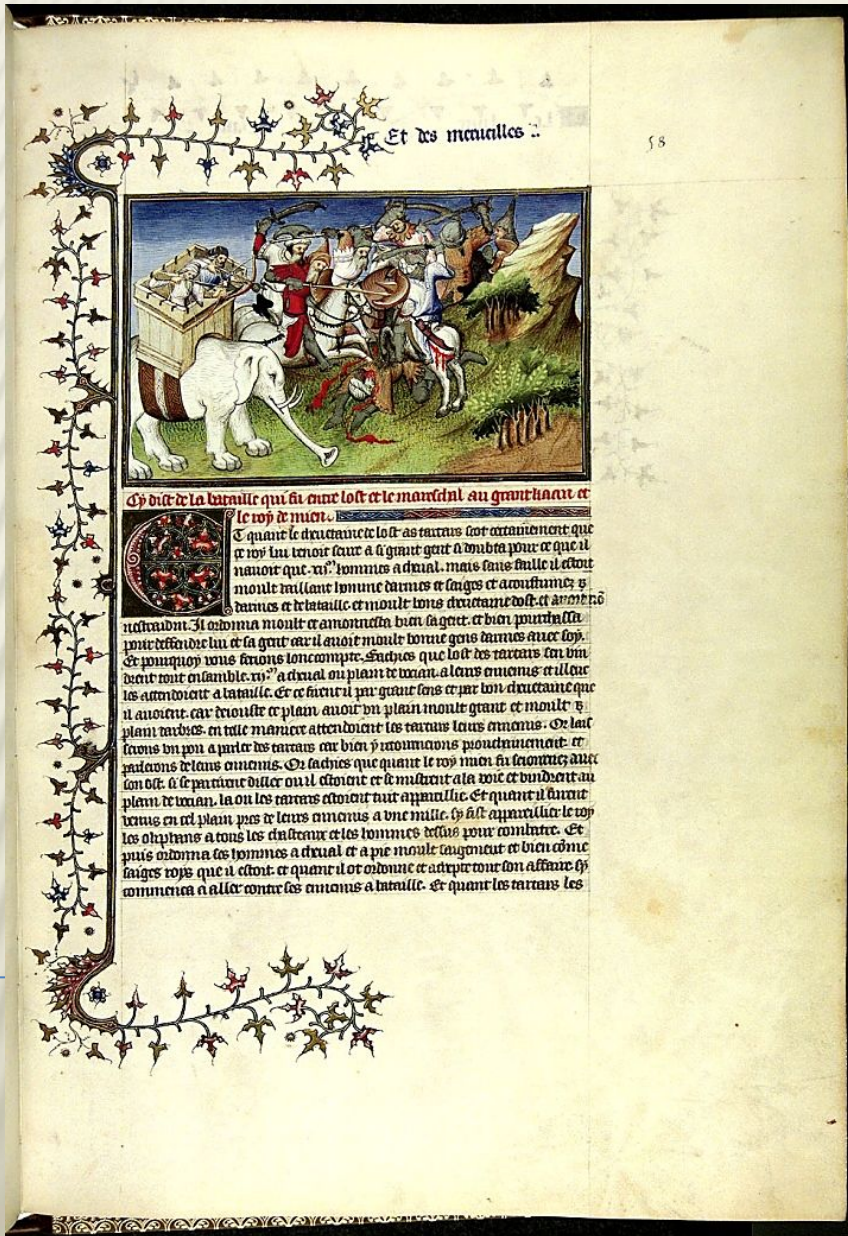 Et des merueilles
58
Cy dist de la bataille qui fu entre lost et le mareschal au grant kaan et
le roy de mien.
Et quant le cheuetaine de lost as tartars scot certainement que
ce roy lui venoit seure a si grant gent si doubta pour ce que il
nauoit que .xij.m hommes a cheual. mais sans faille il estoit
moult vaillant homme darmes et saiges et acoustumez
darmes et de bataille. et moult bons cheuetaine dost. et
Il ordonna moult et amonnesta bien sa gent. et bien pourchassa
pour deffendre lui et sa gent car il auoit moult bonne gens darmes auec soy.
Et pourquoy vous ferons lonc compte. Sachies que lost des tartars sen vin
drent tout ensamble .xij.m a cheual ou plain de vocian. a leurs ennemis et illeuc
les attendoient a bataille. Et ce firent il par grant sens et par bon cheuetaine que
il auoient. car deiouste ce plain auoit vn plain moult grant et moult
plain darbres. en telle maniere attendoient les tartars leurs ennemis. Or lais
serons vn pou a parler des tartars car bien y retournerons prouchainement et
parlerons de leurs ennemis. Or sachies que quant le roy mien fu seiournez auec
son ost. si se partirent dillec ou il estoient et se mistrent a la voie et vindrent au
plain de vocian. la ou les tartars estoient tuit appareillie. Et quant il furent
venus en cel plain pres de leurs ennemis a vne mille. sy fist appareillier le roy
les oliphans a tous les chasteaux et les hommes dessus pour combatre. Et
puis ordonna ses hommes a cheual et a pie moult saigement et bien come
saiges roys que il estoit. et quant il ot ordonne et tout son affaire sy
commenca a aller contre ses ennemis a bataille. Et quant les tartars les